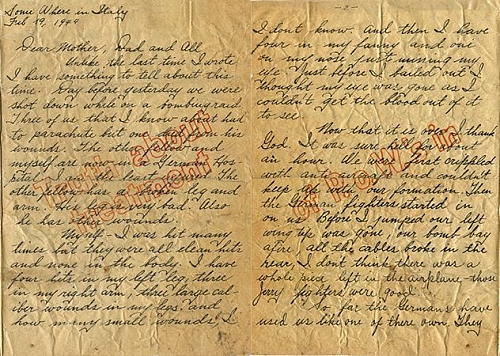 Some Where in Italy
Feb 19, 1944
Dear Mother, Dad and All,
Unlike the last time I wrote
I have something to tell about this
time. Day before yesterday we were
shot down while on a bombing raid.
Three of us that I know about had
to parachute but one died from his
wounds. The other fellow and
myself are now in a German Hos
pital. I am the least wounded. The
other fellow has a broken leg and
arm. His leg is very bad. Also
he has wounds.
Myself - I was hit many
times but they were all clean hits
and none in the body. I have
four hits in my left leg, three
in my right arm, three large cal-
iber wounds in my legs and
how many small wounds, I
- 2 -
I dont know. And then I have
four in my fanny and one
on my nose just missing my
eye. Just before I bailed out I
thought my eye was gone as I
couldn't get the blood out of it
to see.
Now that it is over I thank
God. It was sure hell for about
an hour. We were first crippled
with anti aircraft and couldn't
keep up with our formation. Then
the German fighters started in
on us. Before I jumped our left
wing tip was gone, our bomb bay
afire, all the cables broke in the
rear. I dont think there was a
whole piece left in the airplane - those
Jerry fighters were good.
So far the Germans have
used us like one of there own. They
Truth about
treatment
of P.O.W.'s in